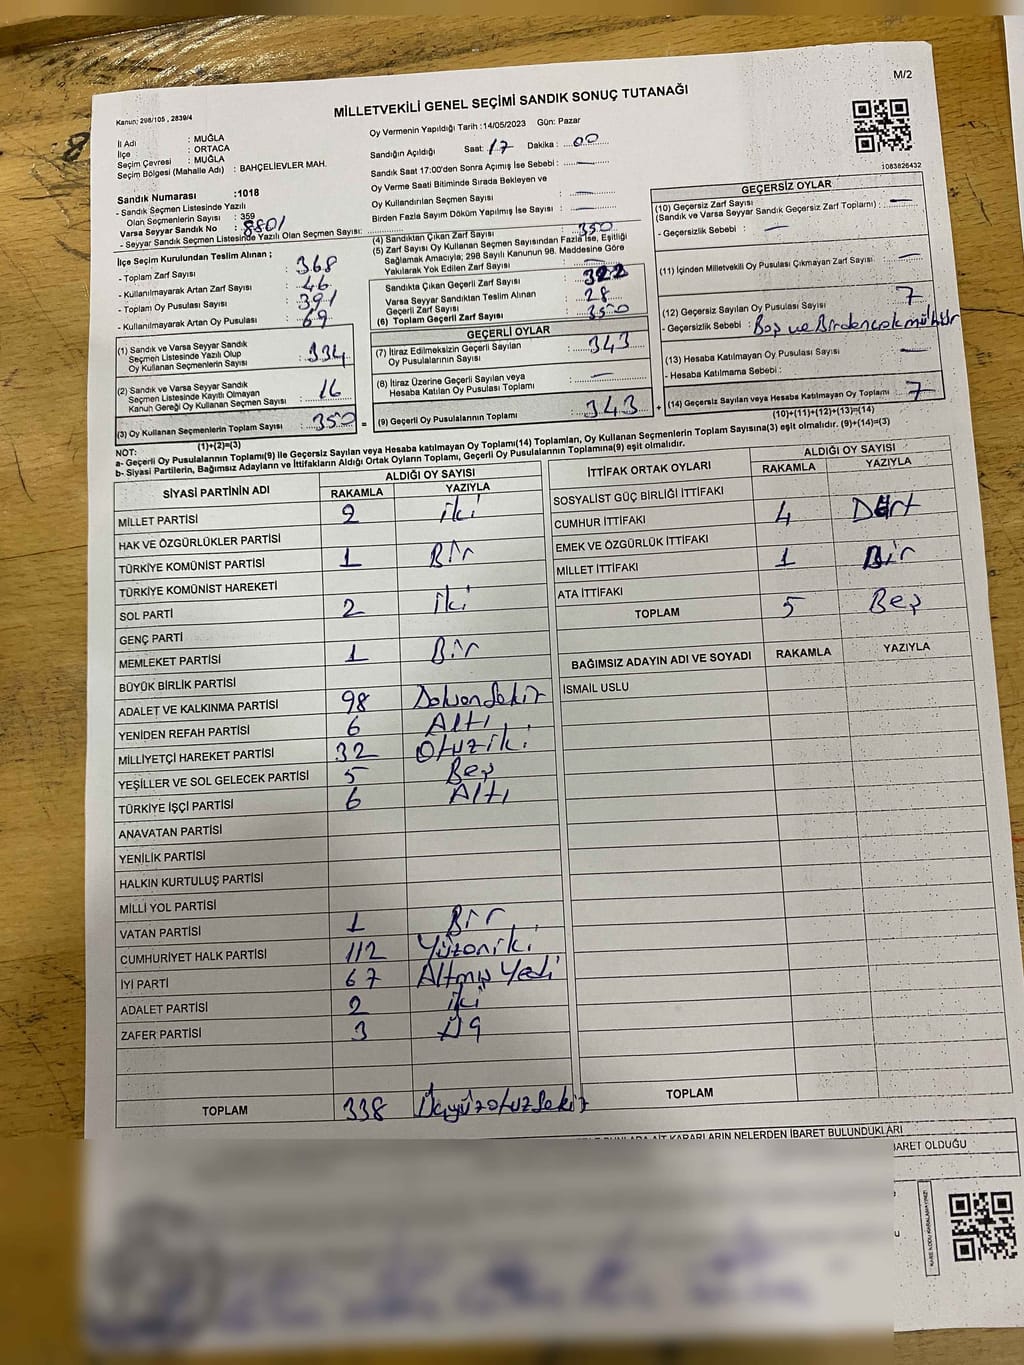 M/2
Kanun: 298/105 , 2839/4
MİLLETVEKİLİ GENEL SEÇİMİ SANDIK SONUÇ TUTANAĞI
İl Adı : MUĞLA
İlçe : ORTACA
Seçim Çevresi : MUĞLA
Seçim Bölgesi (Mahalle Adı) : BAHÇELİEVLER MAH.
Sandık Numarası :1018
- Sandık Seçmen Listesinde Yazılı
Olan Seçmenlerin Sayısı : 359
Varsa Seyyar Sandık No : 8801
- Seyyar Sandık Seçmen Listesinde Yazılı Olan Seçmen Sayısı:
Oy Vermenin Yapıldığı Tarih :14/05/2023 Gün: Pazar
Sandığın Açıldığı Saat : 17 Dakika : 00
Sandık Saat 17:00'den Sonra Açımış İse Sebebi : —
Oy Verme Saati Bitiminde Sırada Bekleyen ve
Oy Kullandırılan Seçmen Sayısı : —
Birden Fazla Sayım Döküm Yapılmış İse Sayısı : —
1083826432
İlçe Seçim Kurulundan Teslim Alınan ;
- Toplam Zarf Sayısı : 368
- Kullanılmayarak Artan Zarf Sayısı : 46
- Toplam Oy Pusulası Sayısı : 391
- Kullanılmayarak Artan Oy Pusulası : 69
(1) Sandık ve Varsa Seyyar Sandık
Seçmen Listesinde Yazılı Olup
Oy Kullanan Seçmenlerin Sayısı : 334
(2) Sandık ve Varsa Seyyar Sandık
Seçmen Listesinde Kayıtlı Olmayan
Kanun Gereği Oy Kullanan Seçmen Sayısı : 16
(3) Oy Kullanan Seçmenlerin Toplam Sayısı : 350
(1)+(2)=(3)
(4) Sandıktan Çıkan Zarf Sayısı : 350
(5) Zarf Sayısı Oy Kullanan Seçmen Sayısından Fazla İse, Eşitliği
Sağlamak Amacıyla; 298 Sayılı Kanunun 98. Maddesine Göre
Yakılarak Yok Edilen Zarf Sayısı : —
Sandıkta Çıkan Geçerli Zarf Sayısı : 322
Varsa Seyyar Sandıktan Teslim Alınan
Geçerli Zarf Sayısı : 28
(6) Toplam Geçerli Zarf Sayısı : 350
GEÇERLİ OYLAR
(7) İtiraz Edilmeksizin Geçerli Sayılan
Oy Pusulalarının Sayısı : 343
(8) İtiraz Üzerine Geçerli Sayılan veya
Hesaba Katılan Oy Pusulası Toplamı : —
= (9) Geçerli Oy Pusulalarının Toplamı : 343 +
GEÇERSİZ OYLAR
(10) Geçersiz Zarf Sayısı
(Sandık ve Varsa Seyyar Sandık Geçersiz Zarf Toplamı) : —
- Geçersizlik Sebebi : —
(11) İçinden Milletvekili Oy Pusulası Çıkmayan Zarf Sayısı : —
(12) Geçersiz Sayılan Oy Pusulası Sayısı : 7
- Geçersizlik Sebebi : Boş ve Birden çok mühür
(13) Hesaba Katılmayan Oy Pusulası Sayısı : —
- Hesaba Katılmama Sebebi :
(14) Geçersiz Sayılan veya Hesaba Katılmayan Oy Toplamı : 7
(10)+(11)+(12)+(13)=(14)
NOT:
a- Geçerli Oy Pusulalarının Toplamı(9) ile Geçersiz Sayılan veya Hesaba katılmayan Oy Toplamı(14) Toplamları, Oy Kullanan Seçmenlerin Toplam Sayısına(3) eşit olmalıdır. (9)+(14)=(3)
b- Siyasi Partilerin, Bağımsız Adayların ve İttifakların Aldığı Ortak Oyların Toplamı, Geçerli Oy Pusulalarının Toplamına(9) eşit olmalıdır.
SİYASİ PARTİNİN ADI ALDIĞI OY SAYISI
RAKAMLA YAZIYLA
MİLLET PARTİSİ 2 iki
HAK VE ÖZGÜRLÜKLER PARTİSİ
TÜRKİYE KOMÜNİST PARTİSİ 1 Bir
TÜRKİYE KOMÜNİST HAREKETİ
SOL PARTİ 2 iki
GENÇ PARTİ
MEMLEKET PARTİSİ 1 Bir
BÜYÜK BİRLİK PARTİSİ
ADALET VE KALKINMA PARTİSİ 98 Doksan Sekiz
YENİDEN REFAH PARTİSİ 6 Altı
MİLLİYETÇİ HAREKET PARTİSİ 32 Otuz iki
YEŞİLLER VE SOL GELECEK PARTİSİ 5 Beş
TÜRKİYE İŞÇİ PARTİSİ 6 Altı
ANAVATAN PARTİSİ
YENİLİK PARTİSİ
HALKIN KURTULUŞ PARTİSİ
MİLLİ YOL PARTİSİ
VATAN PARTİSİ 1 Bir
CUMHURİYET HALK PARTİSİ 112 Yüzoniki
İYİ PARTİ 67 Altmış Yedi
ADALET PARTİSİ 2 iki
ZAFER PARTİSİ 3 Üç
TOPLAM 338 Üçyüzotuzsekiz
İTTİFAK ORTAK OYLARI ALDIĞI OY SAYISI
RAKAMLA YAZIYLA
SOSYALİST GÜÇ BİRLİĞİ İTTİFAKI
CUMHUR İTTİFAKI 4 Dört
EMEK VE ÖZGÜRLÜK İTTİFAKI
MİLLET İTTİFAKI 1 Bir
ATA İTTİFAKI
TOPLAM 5 Beş
BAĞIMSIZ ADAYIN ADI VE SOYADI RAKAMLA YAZIYLA
İSMAİL USLU
TOPLAM
AİT KARARLARIN NELERDEN İBARET BULUNDUKLARI
BARET OLDUĞU